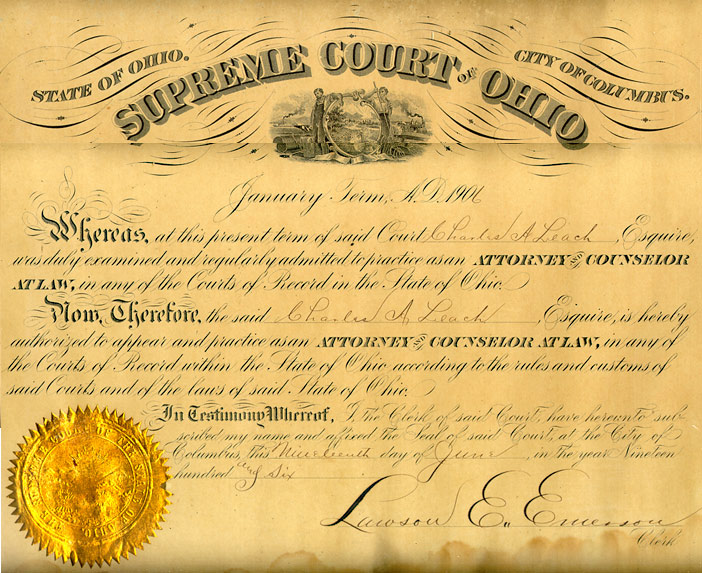 STATE OF OHIO.
CITY OF COLUMBUS.
SUPREME COURT OF OHIO
January Term, A.D. 1906
Whereas, at this present term of said Court Charles A Leach, Esquire,
was duly examined and regularly admitted to practice as an ATTORNEY AND COUNSELOR
AT LAW, in any of the Courts of Record in the State of Ohio.
Now, Therefore, the said Charles A Leach, Esquire, is hereby
authorized to appear and practice as an ATTORNEY AND COUNSELOR AT LAW, in any of
the Courts of Record within the State of Ohio according to the rules and customs of
said Courts and of the laws of said State of Ohio.
In Testimony Whereof, I the Clerk of said Court, have hereunto sub-
scribed my name and affixed the Seal of said Court, at the City of
Columbus, this Nineteenth day of June, in the year Nineteen
hundred and six
Lawson E. Emerson
Clerk